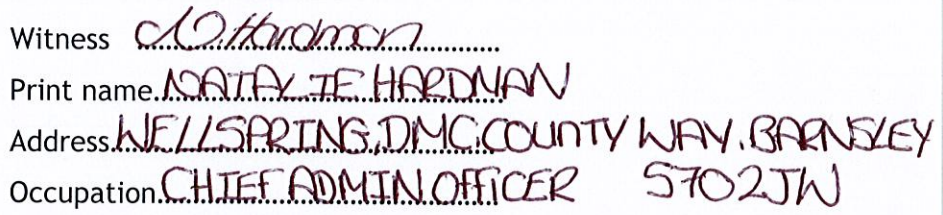 Witness N.Hardman
Print name NATALIE HARDMAN
Address WELLSPRING, DMC, COUNTY WAY, BARNSLEY
Occupation CHIEF ADMIN OFFICER S702JW